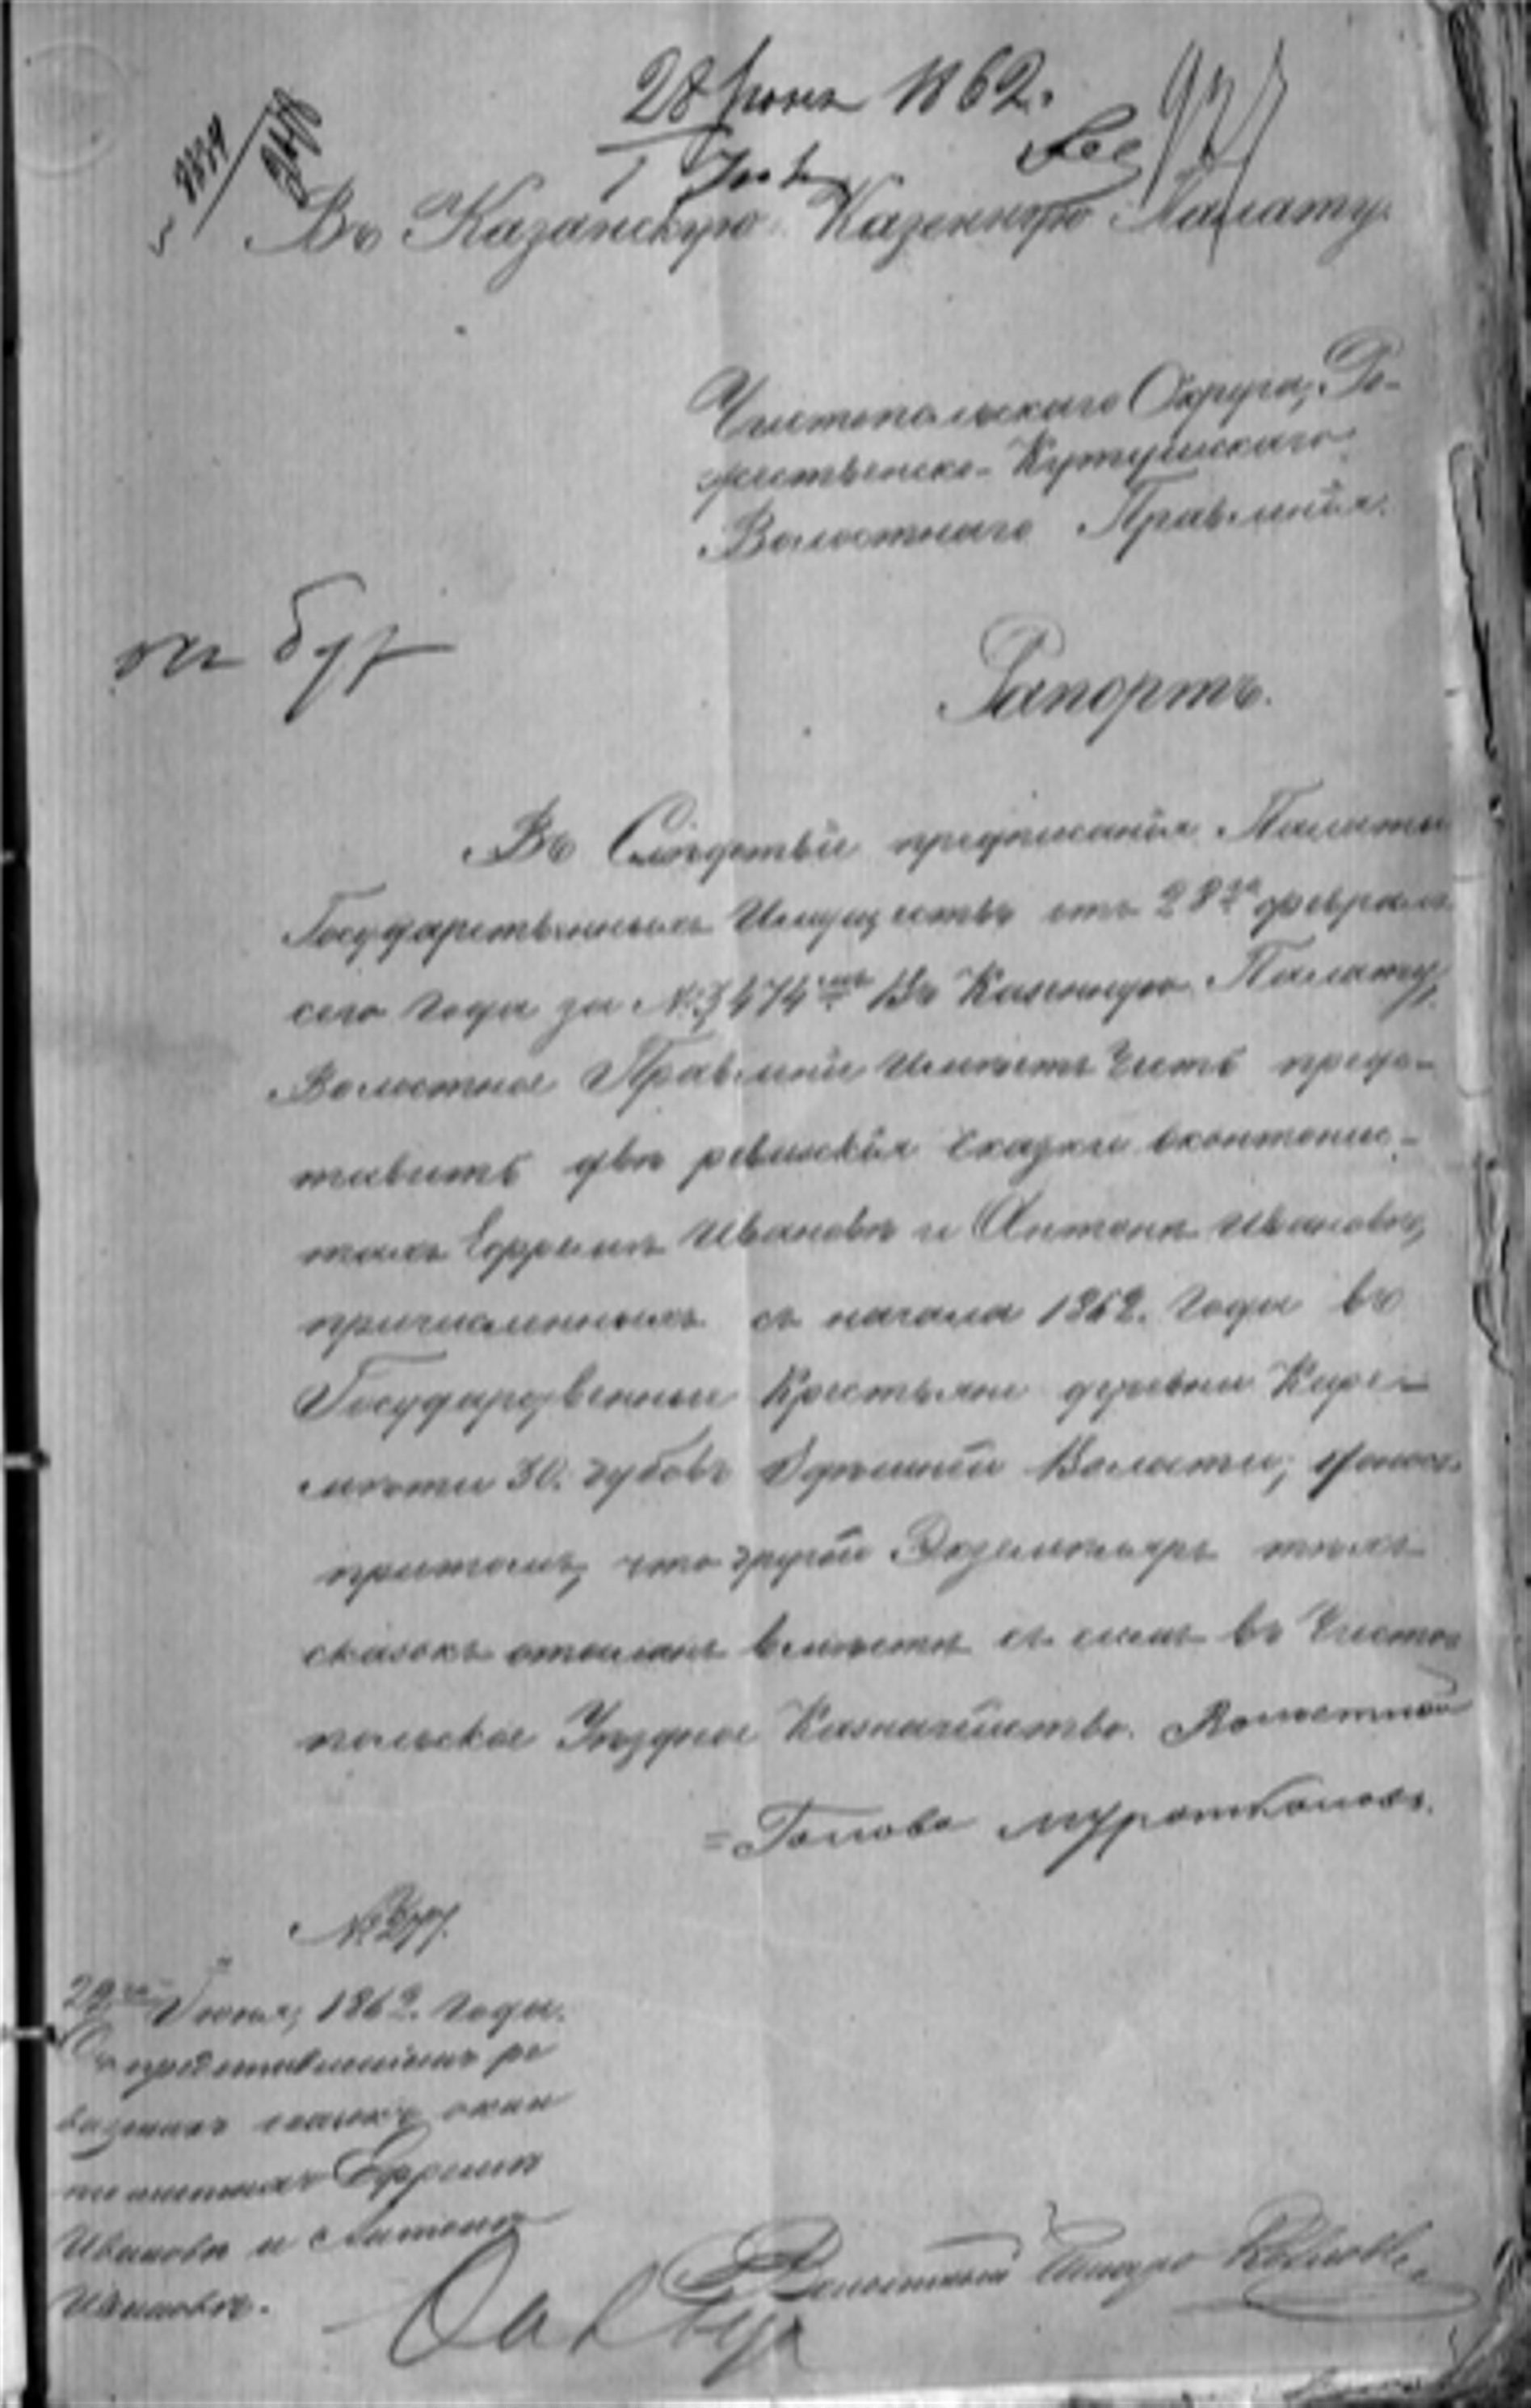 28 Июня 1862.
Въ Казанскую Казенную Палату.
Чистопольскаго Округа, Ро-
жественско-Кутушскаго
Волостнаго Правленія.
Рапортъ.
Въ Слѣдствіе предписанія Палаты
Государственныхъ Имуществъ отъ 28го февраля
сего года за № 3474мъ Въ Казенную Палату,
Волостное Правленіе Имѣетъ Честь предо-
тавить двѣ ревизскія сказки оконтонис-
тахъ Ефремѣ Ивановѣ и Антонѣ Ивановѣ,
причисленныхъ съ начала 1862. года въ
Государственные Крестьяне деревни Киреа-
мѣти 30. дубовъ Здѣшней Волости, донося
притомъ, что другой Экземпляръ тѣхъ
сказокъ отосланъ вмѣстѣ съ симъ въ Чисто-
польское Уѣздное Казначейство. Волостной
Голова
№
Іюня, 1862. года.
Съ представленіемъ ре
визскихъ сказокъ окан
тонистахъ Ефремѣ
Ивановѣ и Антонѣ
Ивановѣ.
Волостный Писарь